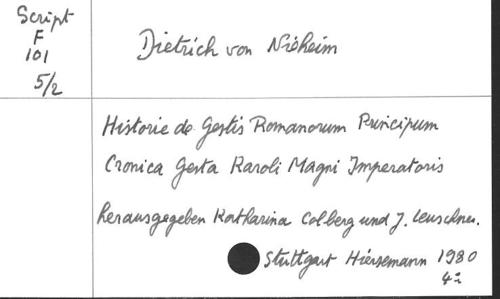 Script
F
101
5/2
Dietrich von Nieheim
Historie de Gestis Romanorum Principum
Cronica Gesta Karoli Magni Imperatoris
herausgegeben Katharina Colberg und J. Leuschner.
Stuttgart Hiersemann 1980
4°